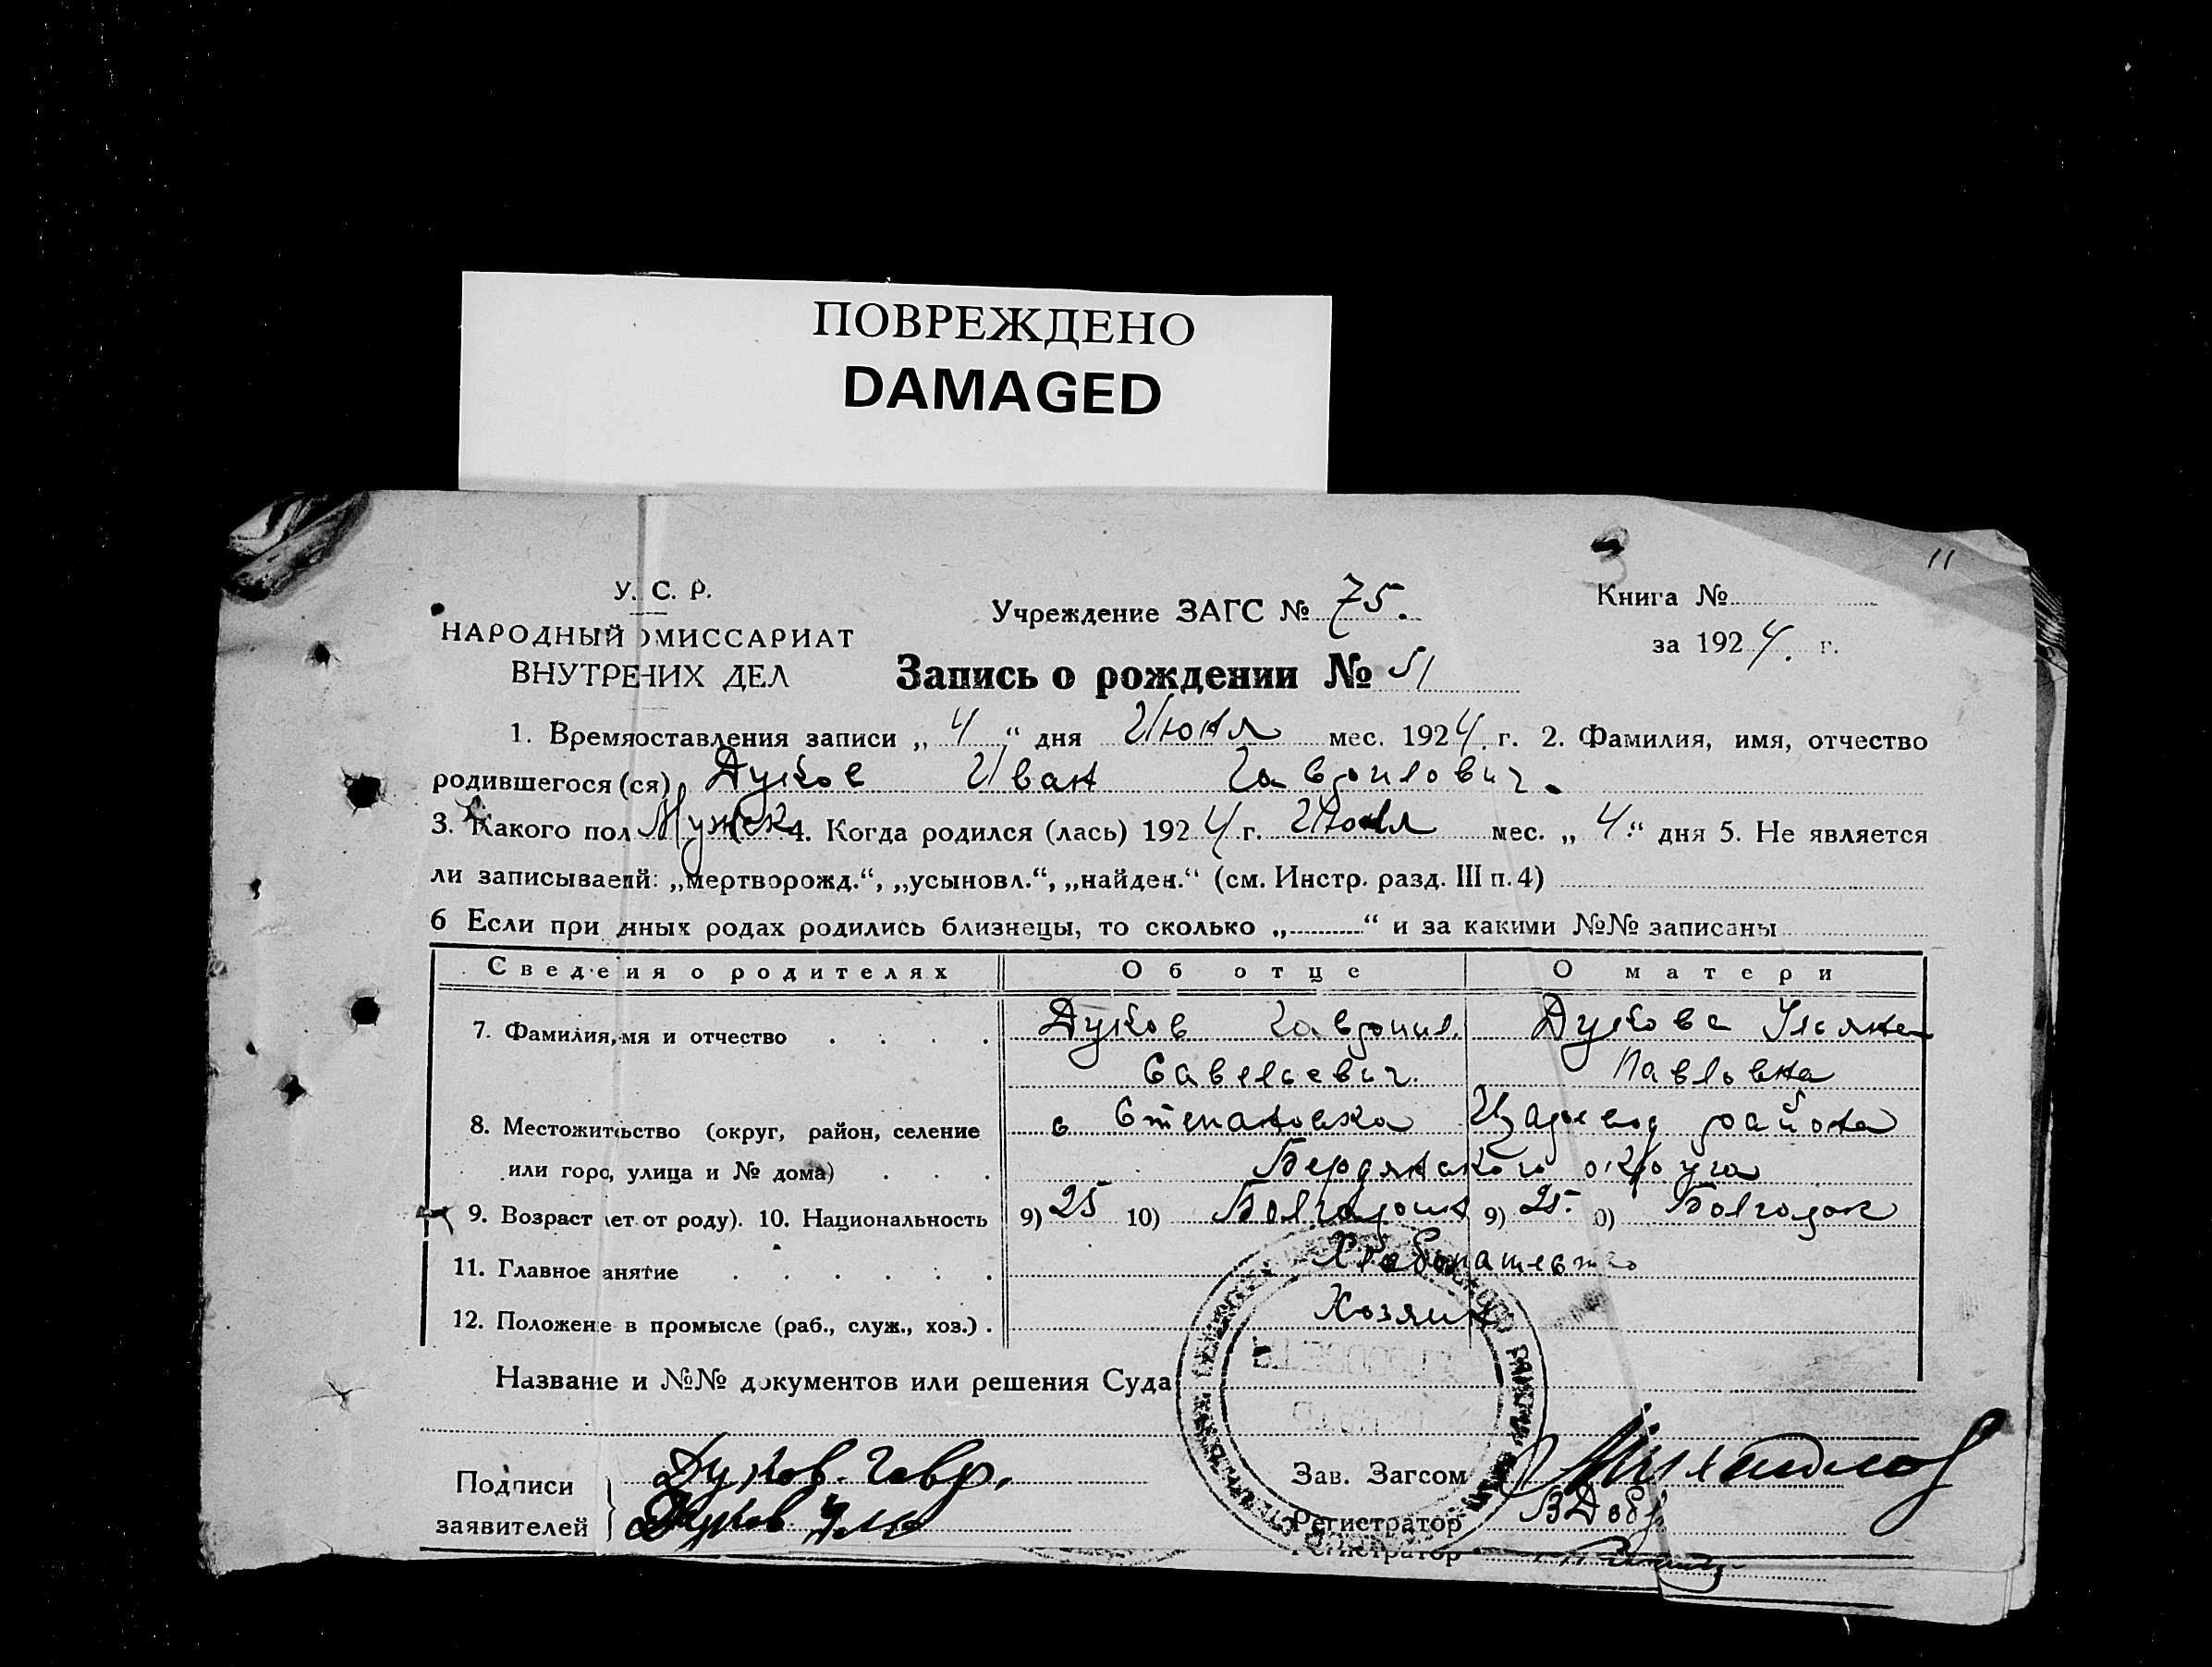 ПОВРЕЖДЕНО
DAMAGED
11
У. С. Р.
НАРОДНЫЙ ОМИССАРИАТ
ВНУТРЕНИХ ДЕЛ
Учреждение ЗАГС № 75.
Книга №
за 1924. г.
Запись о рождении № 51
1. Время оставления записи „ 4 “ дня Июня мес. 1924. г. 2. Фамилия, имя, отчество
родившегося (ся) Дуков Иван Гаврилович.
3. Какого пол Мужск 4. Когда родился (лась) 1924 г. Июня мес. „ 4 “ дня 5. Не является
ли записываеый: „мертворожд.“, „усыновл.“, „найден.“ (см. Инстр. разд. III п. 4)
6 Если при нных родах родились близнецы, то сколько „ “ и за какими №№ записаны
Сведения о родителях Об отце О матери
7. Фамилия, мя и отчество Дуков Гавриил Дукова Ульяна
Савельевич. Павловна
8. Местожительство (округ, район, селение с Степановка Царевод района
или горо, улица и № дома) Бердянского округа
9. Возраст лет от роду). 10. Национальность 9) 25 10) Болгарин 9) 25. 0) Болгарк
11. Главное анятие Хлебопашевство
12. Положене в промысле (раб., служ., хоз.) . Хозяин
Название и №№ документов или решения Суда
Подписи заявителей
Дуков. Гавр.
Дуков
Зав. Загсом Михайлов
Регистратор ВДобр
Регистратор